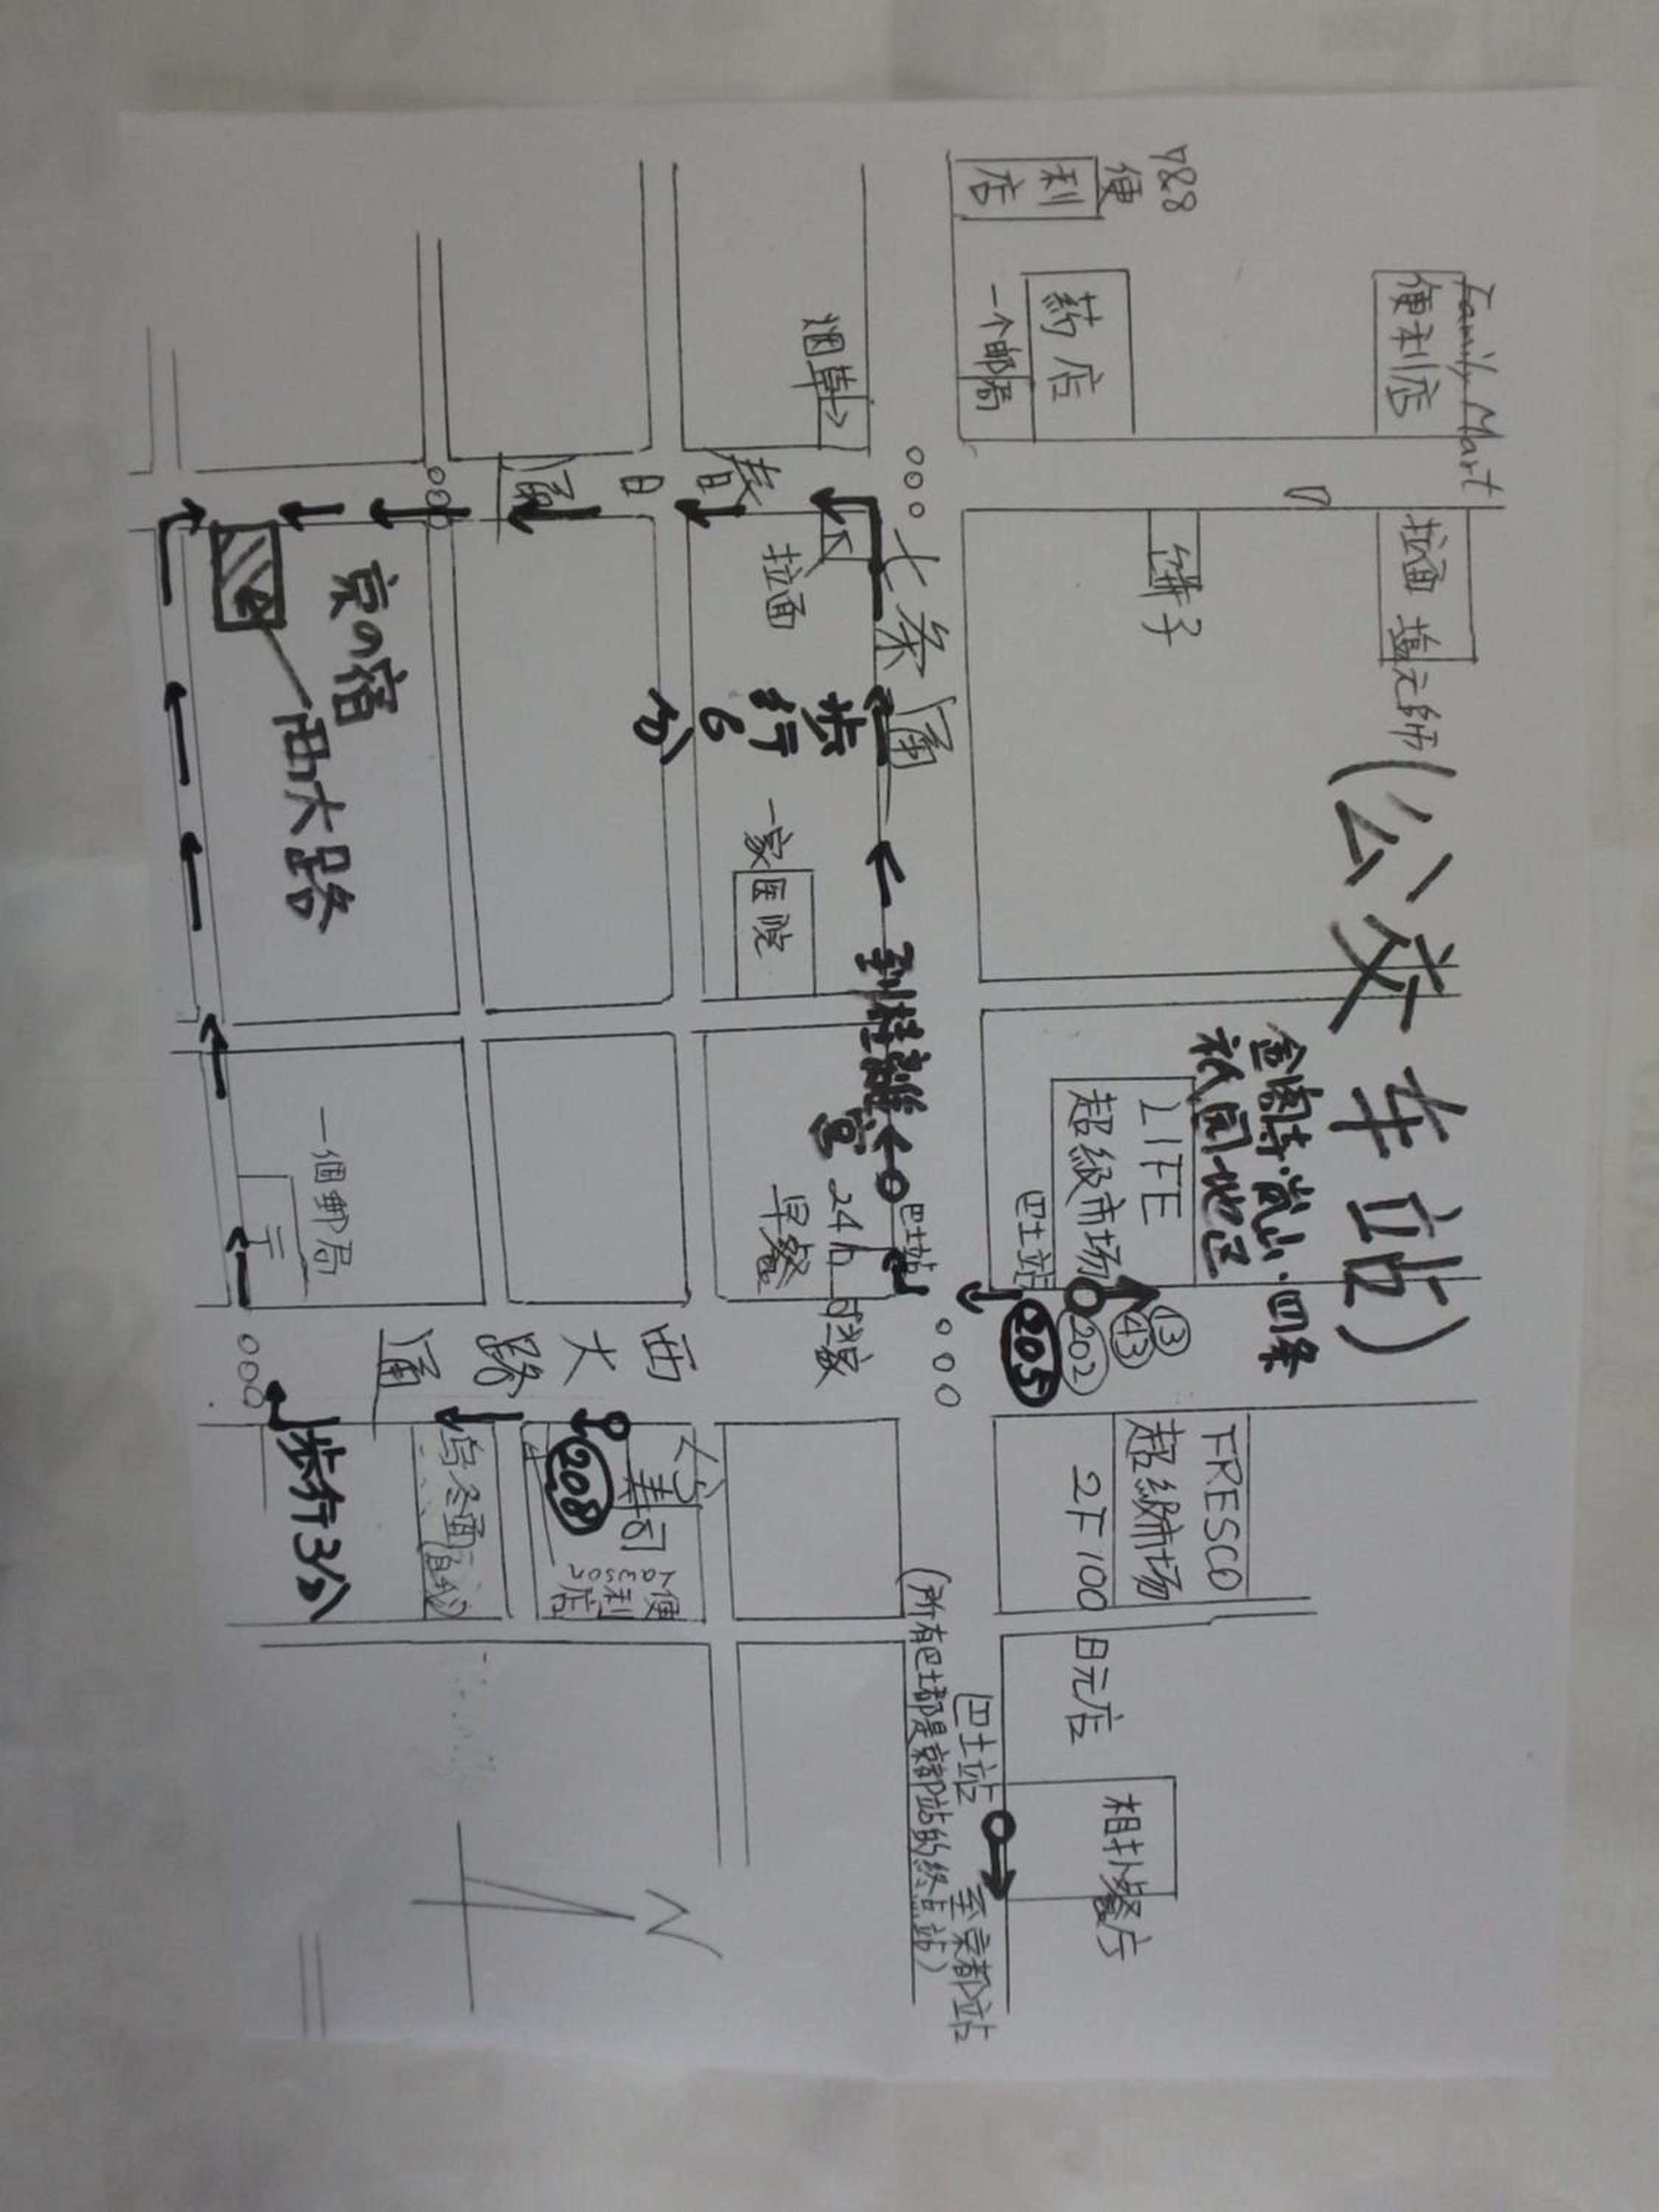 (公交车站)
Family Mart
便利店
拉面 塩元帥
788
便利店
药店
一个邮局
饼子
金阁寺·嵐山·四条
祇園地区
LIFE
超级市场
巴士站
13
43
202
205
FRESCO
超级市场
2F 100日元店
相扑餐厅
七条通
巴士站
至京都站
(所有巴士都是京都站的终点站)
烟草
拉面
步行6分
一家医院
到桂離宮
巴士站
24h
早餐
春日通
西大路通
寿司
208
Lawson
便利店
乌冬面
京の宿
西大路
一個郵局
〒
步行3分
N